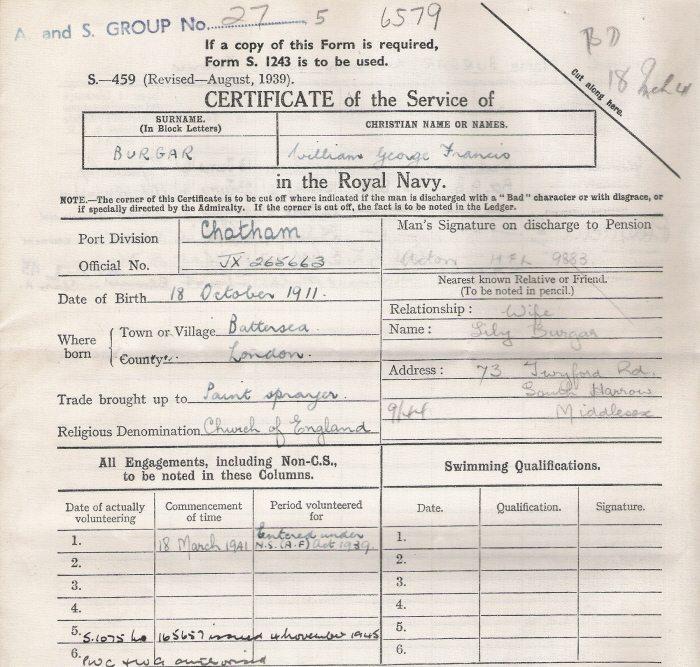 A. and S. GROUP No. 27 5 6579
If a copy of this Form is required,
Form S. 1243 is to be used.
BD
18 Mch 41
Cut along here.
S.—459 (Revised—August, 1939).
CERTIFICATE of the Service of
SURNAME.
(In Block Letters)
CHRISTIAN NAME OR NAMES.
BURGAR
William George Francis
in the Royal Navy.
NOTE.—The corner of this Certificate is to be cut off where indicated if the man is discharged with a "Bad" character or with disgrace, or
if specially directed by the Admiralty. If the corner is cut off, the fact is to be noted in the Ledger.
Port Division Chatham
Official No. JX 265663
Man's Signature on discharge to Pension
Acton HFL 9883.
Date of Birth 18 October 1911.
Where born
Town or Village Battersea.
County London.
Trade brought up to Paint sprayer.
Religious Denomination Church of England
Nearest known Relative or Friend.
(To be noted in pencil.)
Relationship: Wife
Name: Lily Burgar
Address: 73 Twyford Rd.
South Harrow
9/44 Middlesex
All Engagements, including Non-C.S.,
to be noted in these Columns.
Date of actually volunteering
Commencement of time
Period volunteered for
1. 18 March 1941 Entered under N.S. (A.F) Act 1939.
2.
3.
4.
5. S.1075 No 165657 issued 4 November 1945
6. PWC & WG authorised
Swimming Qualifications.
Date. Qualification. Signature.
1.
2.
3.
4.
5.
6.